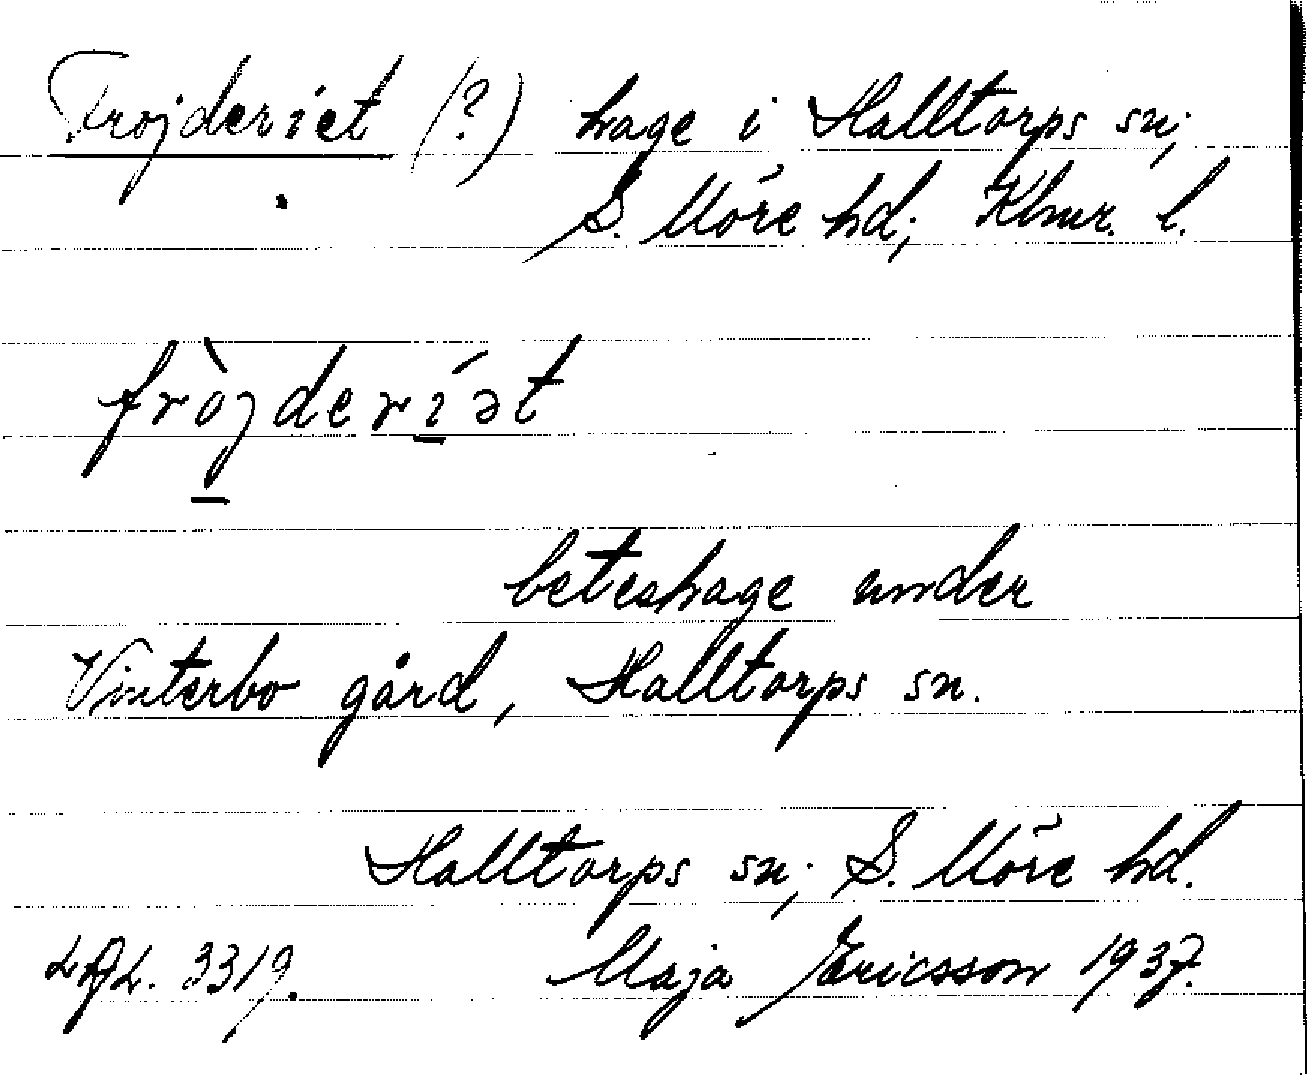 Frojderiet (?) hage i Halltorps sn;
S. Möre hd; Klmr. l.
fròjderíət
beteshage under
Vinterbo gård, Halltorps sn.
Halltorps sn; S. Möre hd.
3319. Maja Ericsson 1937.